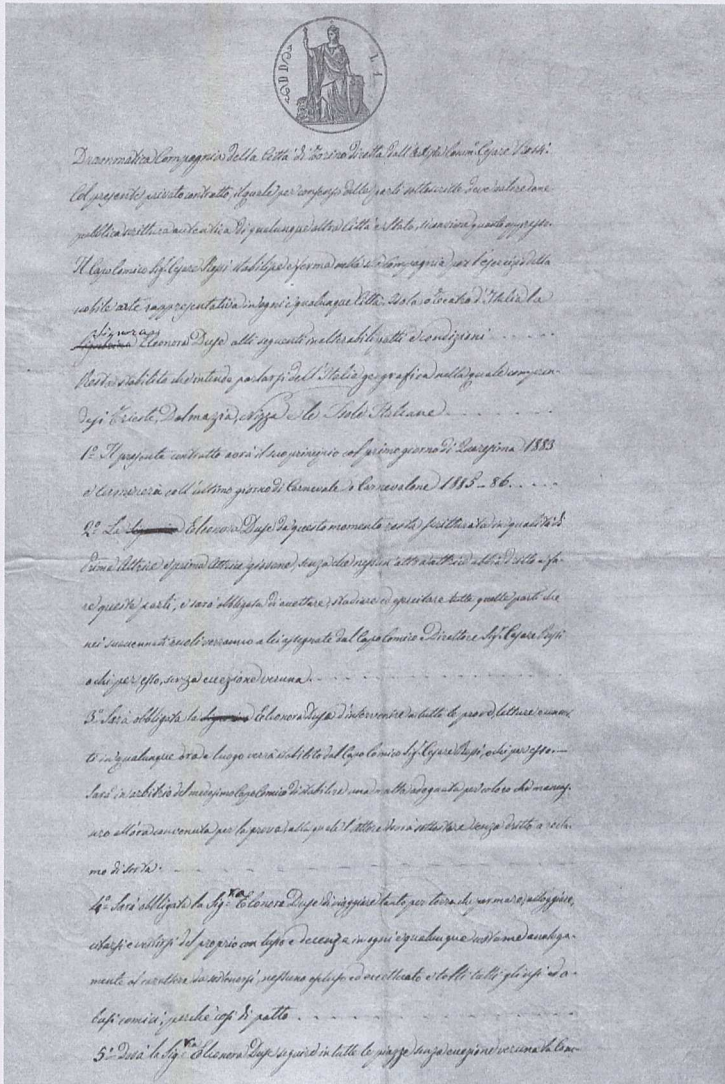 L. 1
Drammatica Compagnia della Città di Torino diretta dall' Cesare Rossi.
Col presente privato contratto, il quale per consenso delle parti sottoscritte deve valere come
pubblica scrittura autentica di qualunque altra Città e Stato, si conviene quanto appresso.
Il Capocomico Sig.r Cesare Rossi stabilisce e ferma nella sua Compagnia per l'esercizio della
nobile arte rappresentativa in ogni e qualunque Città, Isola, o Teatro d'Italia la
Signora
Eleonora Duse alli seguenti inalterabili patti e condizioni
Resta stabilito che intendo parlarsi dell'Italia geografica nella quale compren-
desi Trieste, Dalmazia, Nizza e le Isole Italiane
1.° Il presente contratto avrà il suo principio col primo giorno di Quaresima 1883
e terminerà coll'ultimo giorno di Carnevale o Carnevalone 1885-86.
2.° La Eleonora Duse da questo momento resta scritturata in qualità di
Prima Attrice e prima Attrice giovane, senza che nessun'altra attrice abbia dritto a fa-
re queste parti, e sarà obbligata di accettare, studiare ed eseguitare tutte quelle parti che
nei succennati ruoli verranno a lei assegnate dal Capocomico e Direttore Sig.r Cesare Rossi
o chi per esso, senza eccezione veruna.
3.° Sarà obbligata la Eleonora Duse d'intervenire a tutte le prove, letture e
in qualunque ora e luogo verrà stabilito dal Capocomico Sig.r Cesare Rossi, o chi per esso.
Sarà in arbitrio del medesimo Capocomico di stabilire una multa adeguata per coloro che mancas-
sero all'ora convenuta per la prova, alla quale l'attore dovrà sottostare senza dritto a recla-
mo di sorta.
4.° Sarà obbligata la Sig.ra Eleonora Duse di viaggiare tanto per terra che per mare, alloggiare,
e vestirsi del proprio con lusso e decenza in ogni e qualunque costume analoga-
mente al carattere da sostenersi, nessuno escluso ed eccettuato e tolti tutti gli usi ed a-
busi comici, perché così di patto.
5.° Dovrà la Sig.ra Eleonora Duse seguire in tutte le piazze senza eccezione veruna la Com-